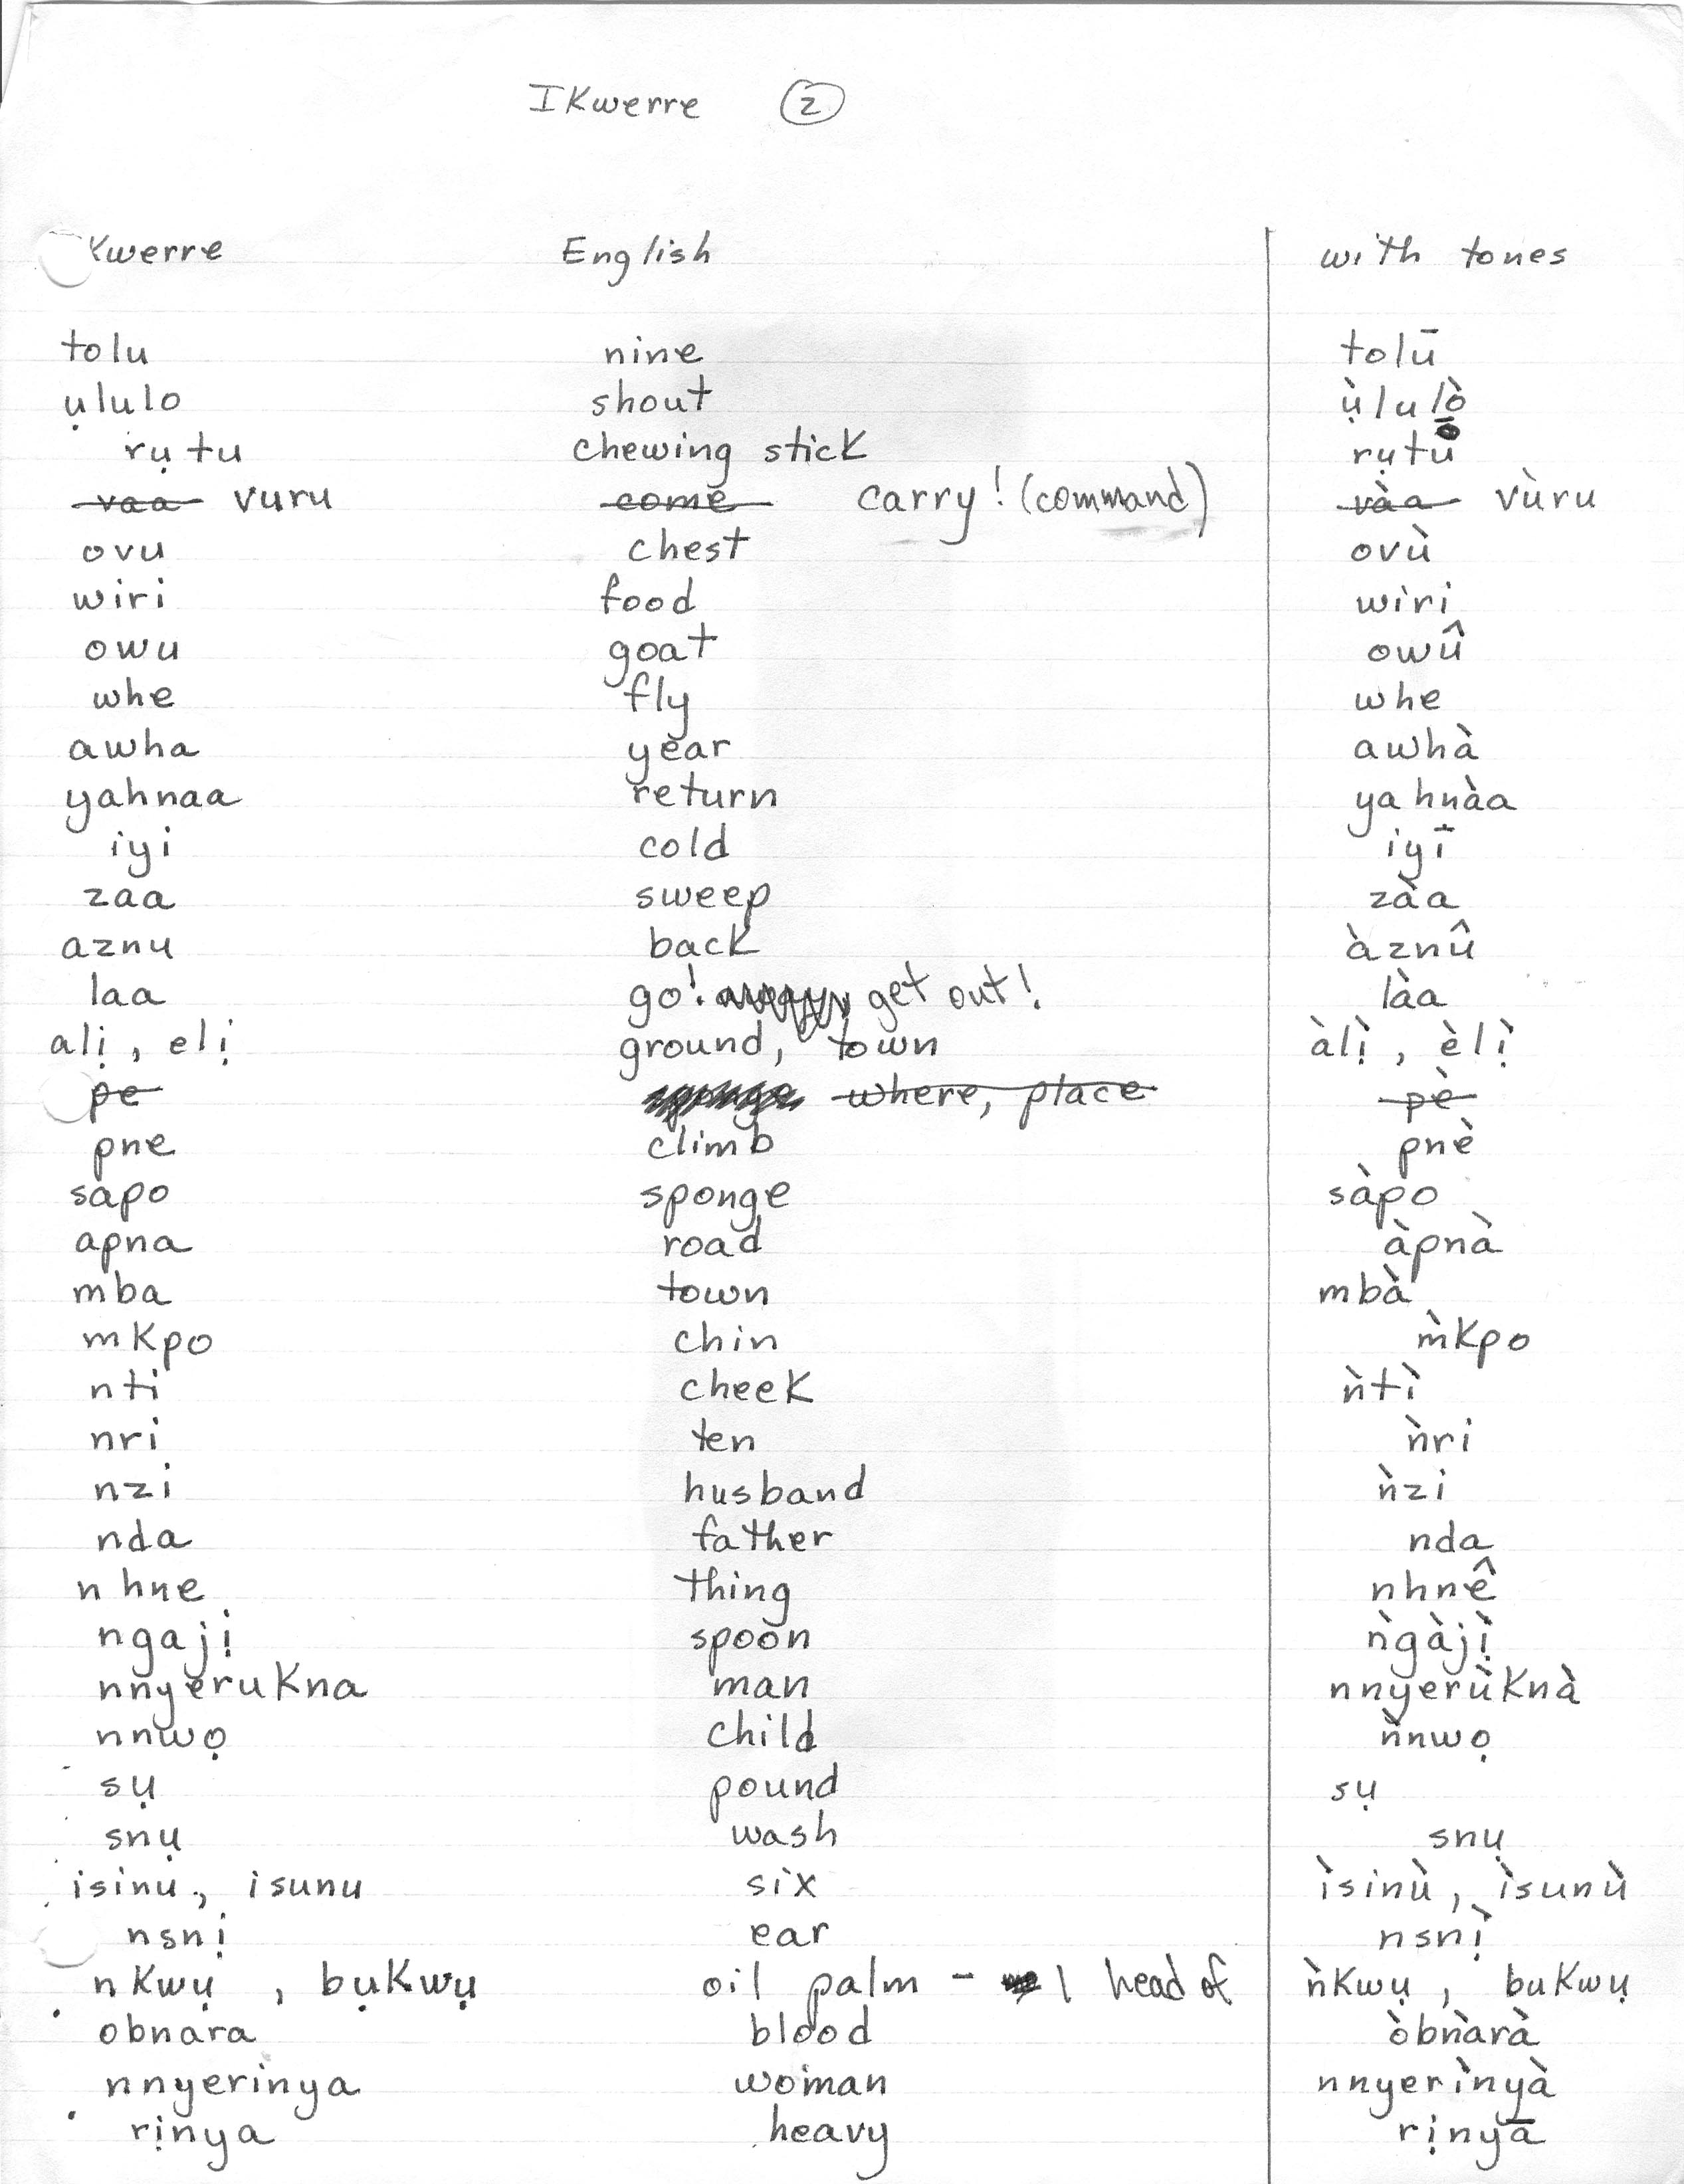 IKwerre 2
Kwerre English with tones
tolu nine tolū
ụlulo shout ụ̀lulò
rụtu chewing stick rụtū
vaa vuru come carry! (command) vàa vùru
ovu chest ovù
wiri food wiri
owu goat owû
whe fly whe
awha year awhà
yahnaa return yahnàa
iyi cold iyī
zaa sweep zàa
aznu back àznû
laa go! get out! làa
alị, elị ground, town àlị̀, èlị̀
pe sponge where, place pè
pne climb pnè
sapo sponge sàpo
apna road àpnà
mba town mbà
mkpo chin m̀kpo
nti cheek ǹtì
nri ten ǹri
nzi husband ǹzi
nda father nda
nhne thing nhnê
ngajị spoon ǹgàjị̀
nnyerukna man nnyerùknà
nnwọ child ǹnwọ
sụ pound sụ
snụ wash snụ
isinu, isunu six ìsinù, ìsunù
nsnị ear nsnị̀
nkwụ, bụkwụ oil palm - 1 head of ǹkwụ, bukwụ
obnara blood òbnàrà
nnyerinya woman nnyerìnyà
rịnya heavy rịnyā